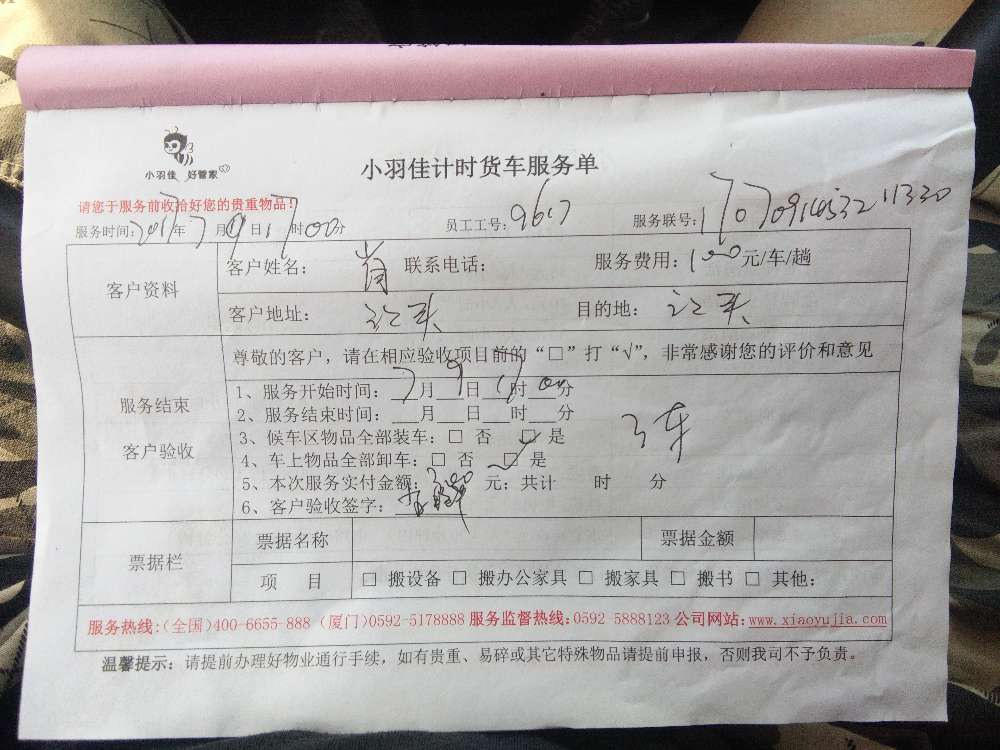 小羽佳 好管家
小羽佳计时货车服务单
请您于服务前收拾好您的贵重物品！
服务时间：2017年7月9日17时00分 员工工号：9617 服务联号：
客户资料
客户姓名：肖 联系电话： 服务费用：100元/车/趟
客户地址：江头 目的地：江头
服务结束
客户验收
尊敬的客户，请在相应验收项目前的“□”打“√”，非常感谢您的评价和意见
1、服务开始时间：7月9日17时00分
2、服务结束时间：___月___日___时___分
3、候车区物品全部装车：□ 否 □ 是
4、车上物品全部卸车：□ 否 □ 是
3车
5、本次服务实付金额：300元；共计 时 分
6、客户验收签字：
票据栏
票据名称 票据金额
项 目 □ 搬设备 □ 搬办公家具 □ 搬家具 □ 搬书 □ 其他：
服务热线：（全国）400-6655-888（厦门）0592-5178888 服务监督热线：0592-5888123 公司网站：www.xiaoyujia.com
温馨提示：请提前办理好物业通行手续，如有贵重、易碎或其它特殊物品请提前申报，否则我司不予负责。